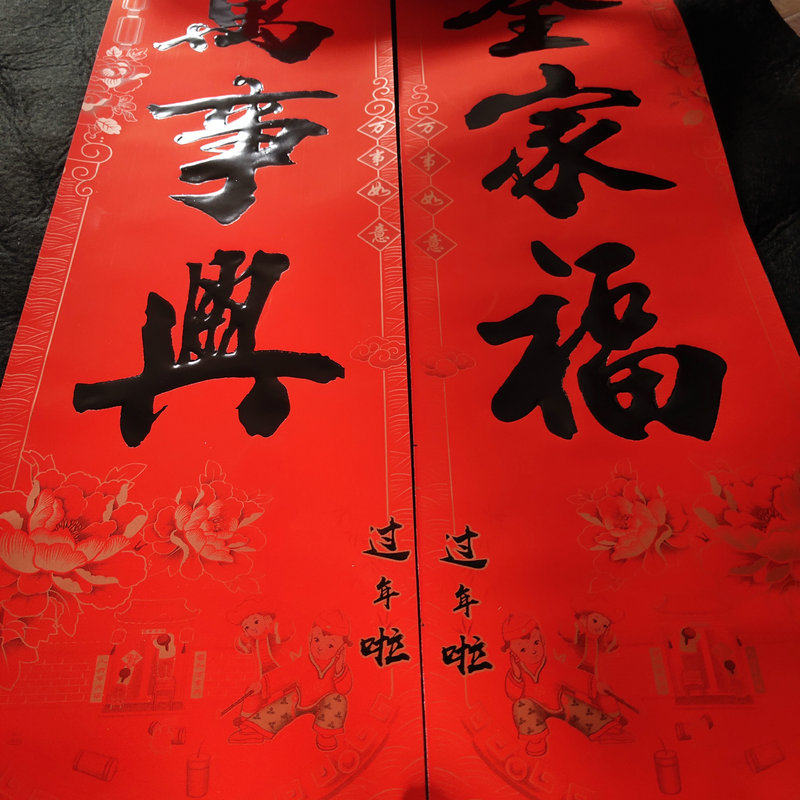 全家福
万事如意
过年啦
萬事興
万事如意
过年啦